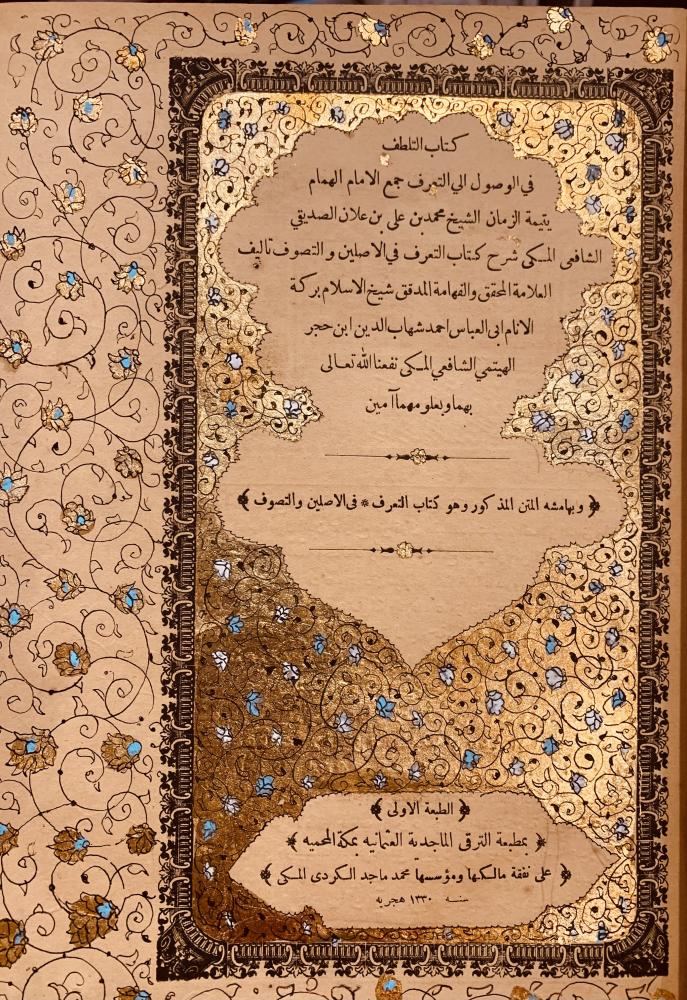 كتاب التلطف
في الوصول الي التعرف جمع الامام الهمام
يتيمة الزمان الشيخ محمد بن على بن علان الصديقي
الشافعى المكى شرح كتاب التعرف في الاصلين و التصوف تاليف
العلامة المحقق والفهامة المدقق شيخ الاسلام بركة
الانام ابى العباس احمد شهاب الدين ابن حجر
الهيتمي الشافعي المكى نفعنا الله تعالى
بهما وبعلومهما آمين
﴿ وبهامشه المتن المذكور وهو كتاب التعرف * فى الاصلين والتصوف ﴾
﴿ الطبعة الاولى ﴾
﴿ بمطبعة الترقى الماجدية العثمانيه بمكة المحميه ﴾
﴿ على نفقة مالكها ومؤسسها محمد ماجد الكردى المكى ﴾
سنه ١٣٣٠ هجريه